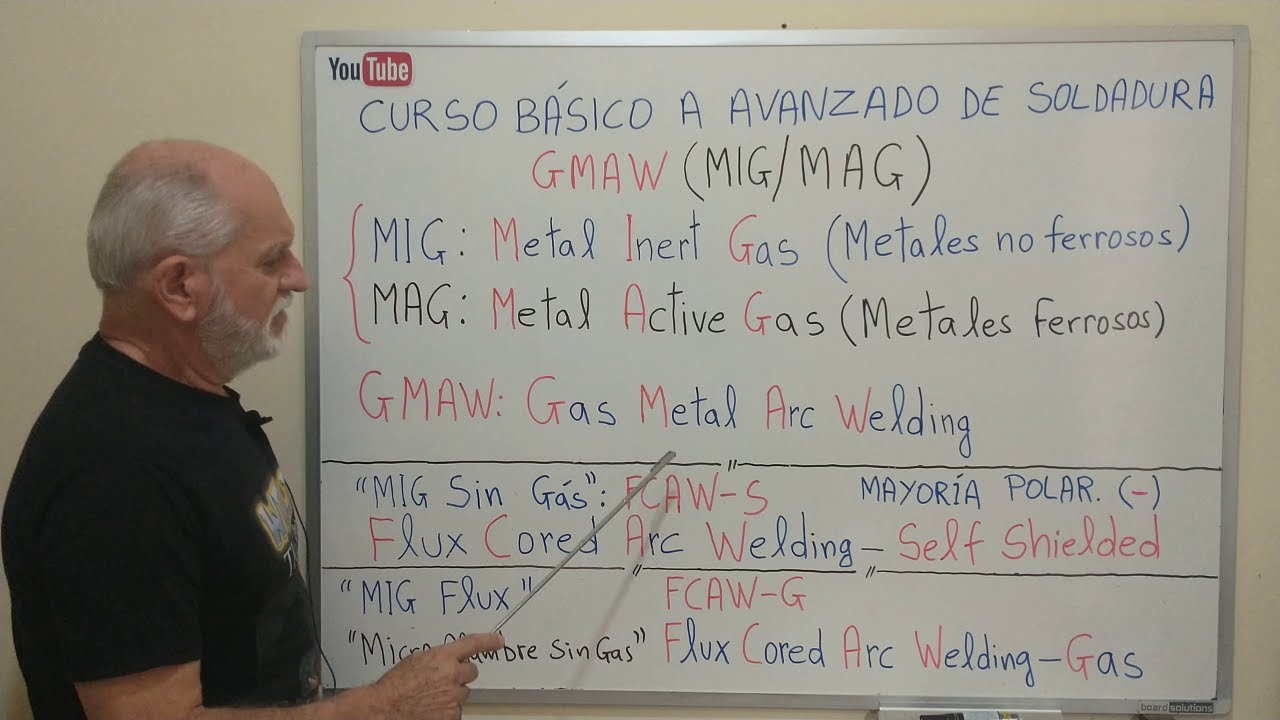 YouTube
CURSO BÁSICO A AVANZADO DE SOLDADURA
GMAW (MIG/MAG)
MIG: Metal Inert Gas (Metales no ferrosos)
MAG: Metal Active Gas (Metales ferrosos)
GMAW: Gas Metal Arc Welding
"MIG Sin Gás": FCAW-S MAYORÍA POLAR. (-)
Flux Cored Arc Welding - Self Shielded
"MIG Flux" FCAW-G
Sin Gas" Flux Cored Arc Welding-Gas
boardsolutions